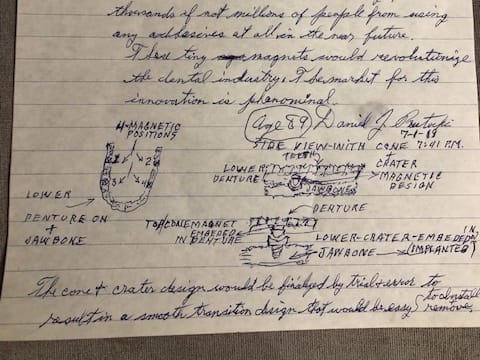 thousands if not millions of people from using
any adhesives at all in the near future.
These tiny magnets would revolutionize
the dental industry. The market for this
innovation is phenominal.
(age 89) Daniel J.
7-1-19
4-MAGNETIC
POSITIONS
1
2
3
4
LOWER
DENTURE ON
+
JAWBONE
SIDE VIEW-WITH CONE 7:41 P.M.
TEETH
CRATER
LOWER
DENTURE
MAGNETIC
DESIGN
JAWBONE
DENTURE
TOP CONE MAGNET
EMBEDED
IN DENTURE
LOWER-CRATER-EMBEDED IN
JAWBONE (IMPLANTED)
The cone + crater design would be finalized by trial + error to
result in a smooth transition design that would be easy to install
remove,